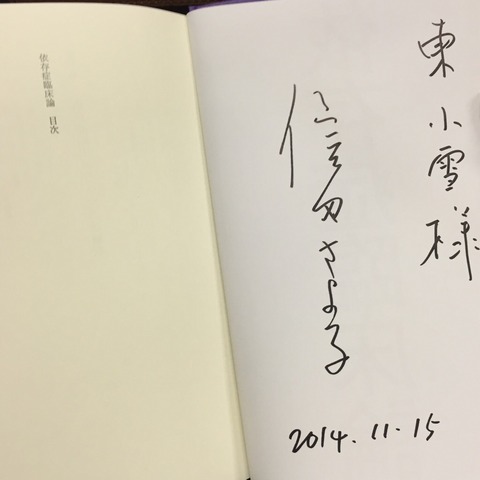 東小雪様
信田さよ子
2014.11.15
依存症臨床論 目次